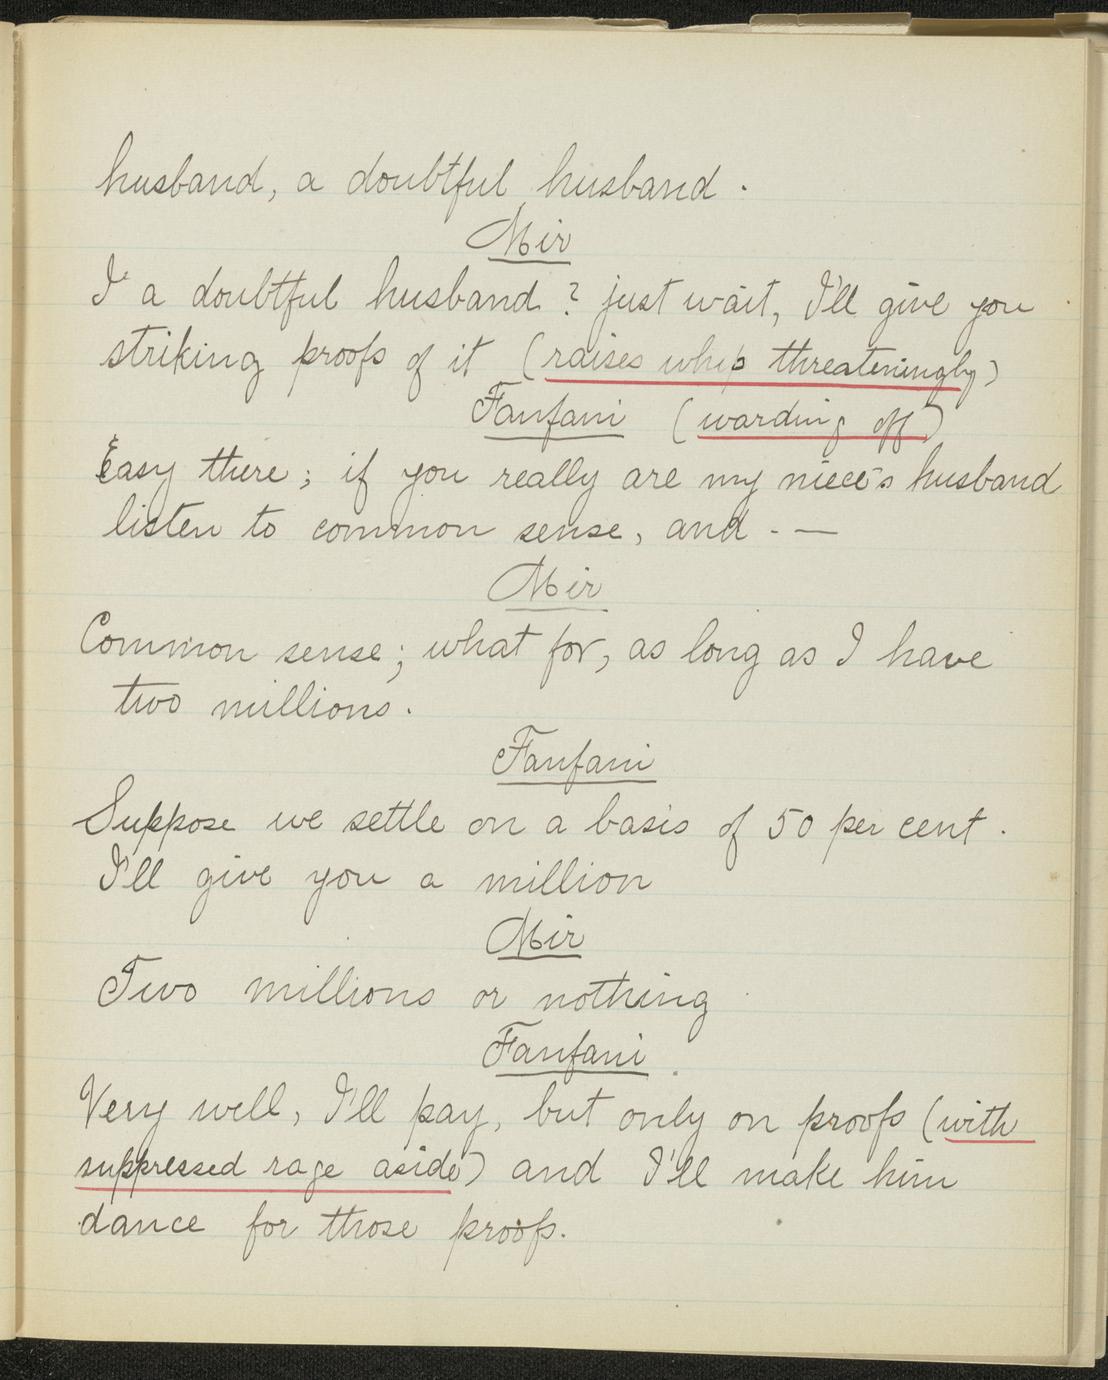 husband, a doubtful husband.
Mir
I a doubtful husband? just wait, I'll give you
striking proofs of it (raises whip threateningly)
Fanfani (warding off)
Easy there; if you really are my niece's husband
listen to common sense, and - —
Mir
Common sense; what for, as long as I have
two millions.
Fanfani
Suppose we settle on a basis of 50 per cent.
I'll give you a million
Mir
Two millions or nothing
Fanfani.
Very well, I'll pay, but only on proofs (with
suppressed rage aside) and I'll make him
dance for those proofs.